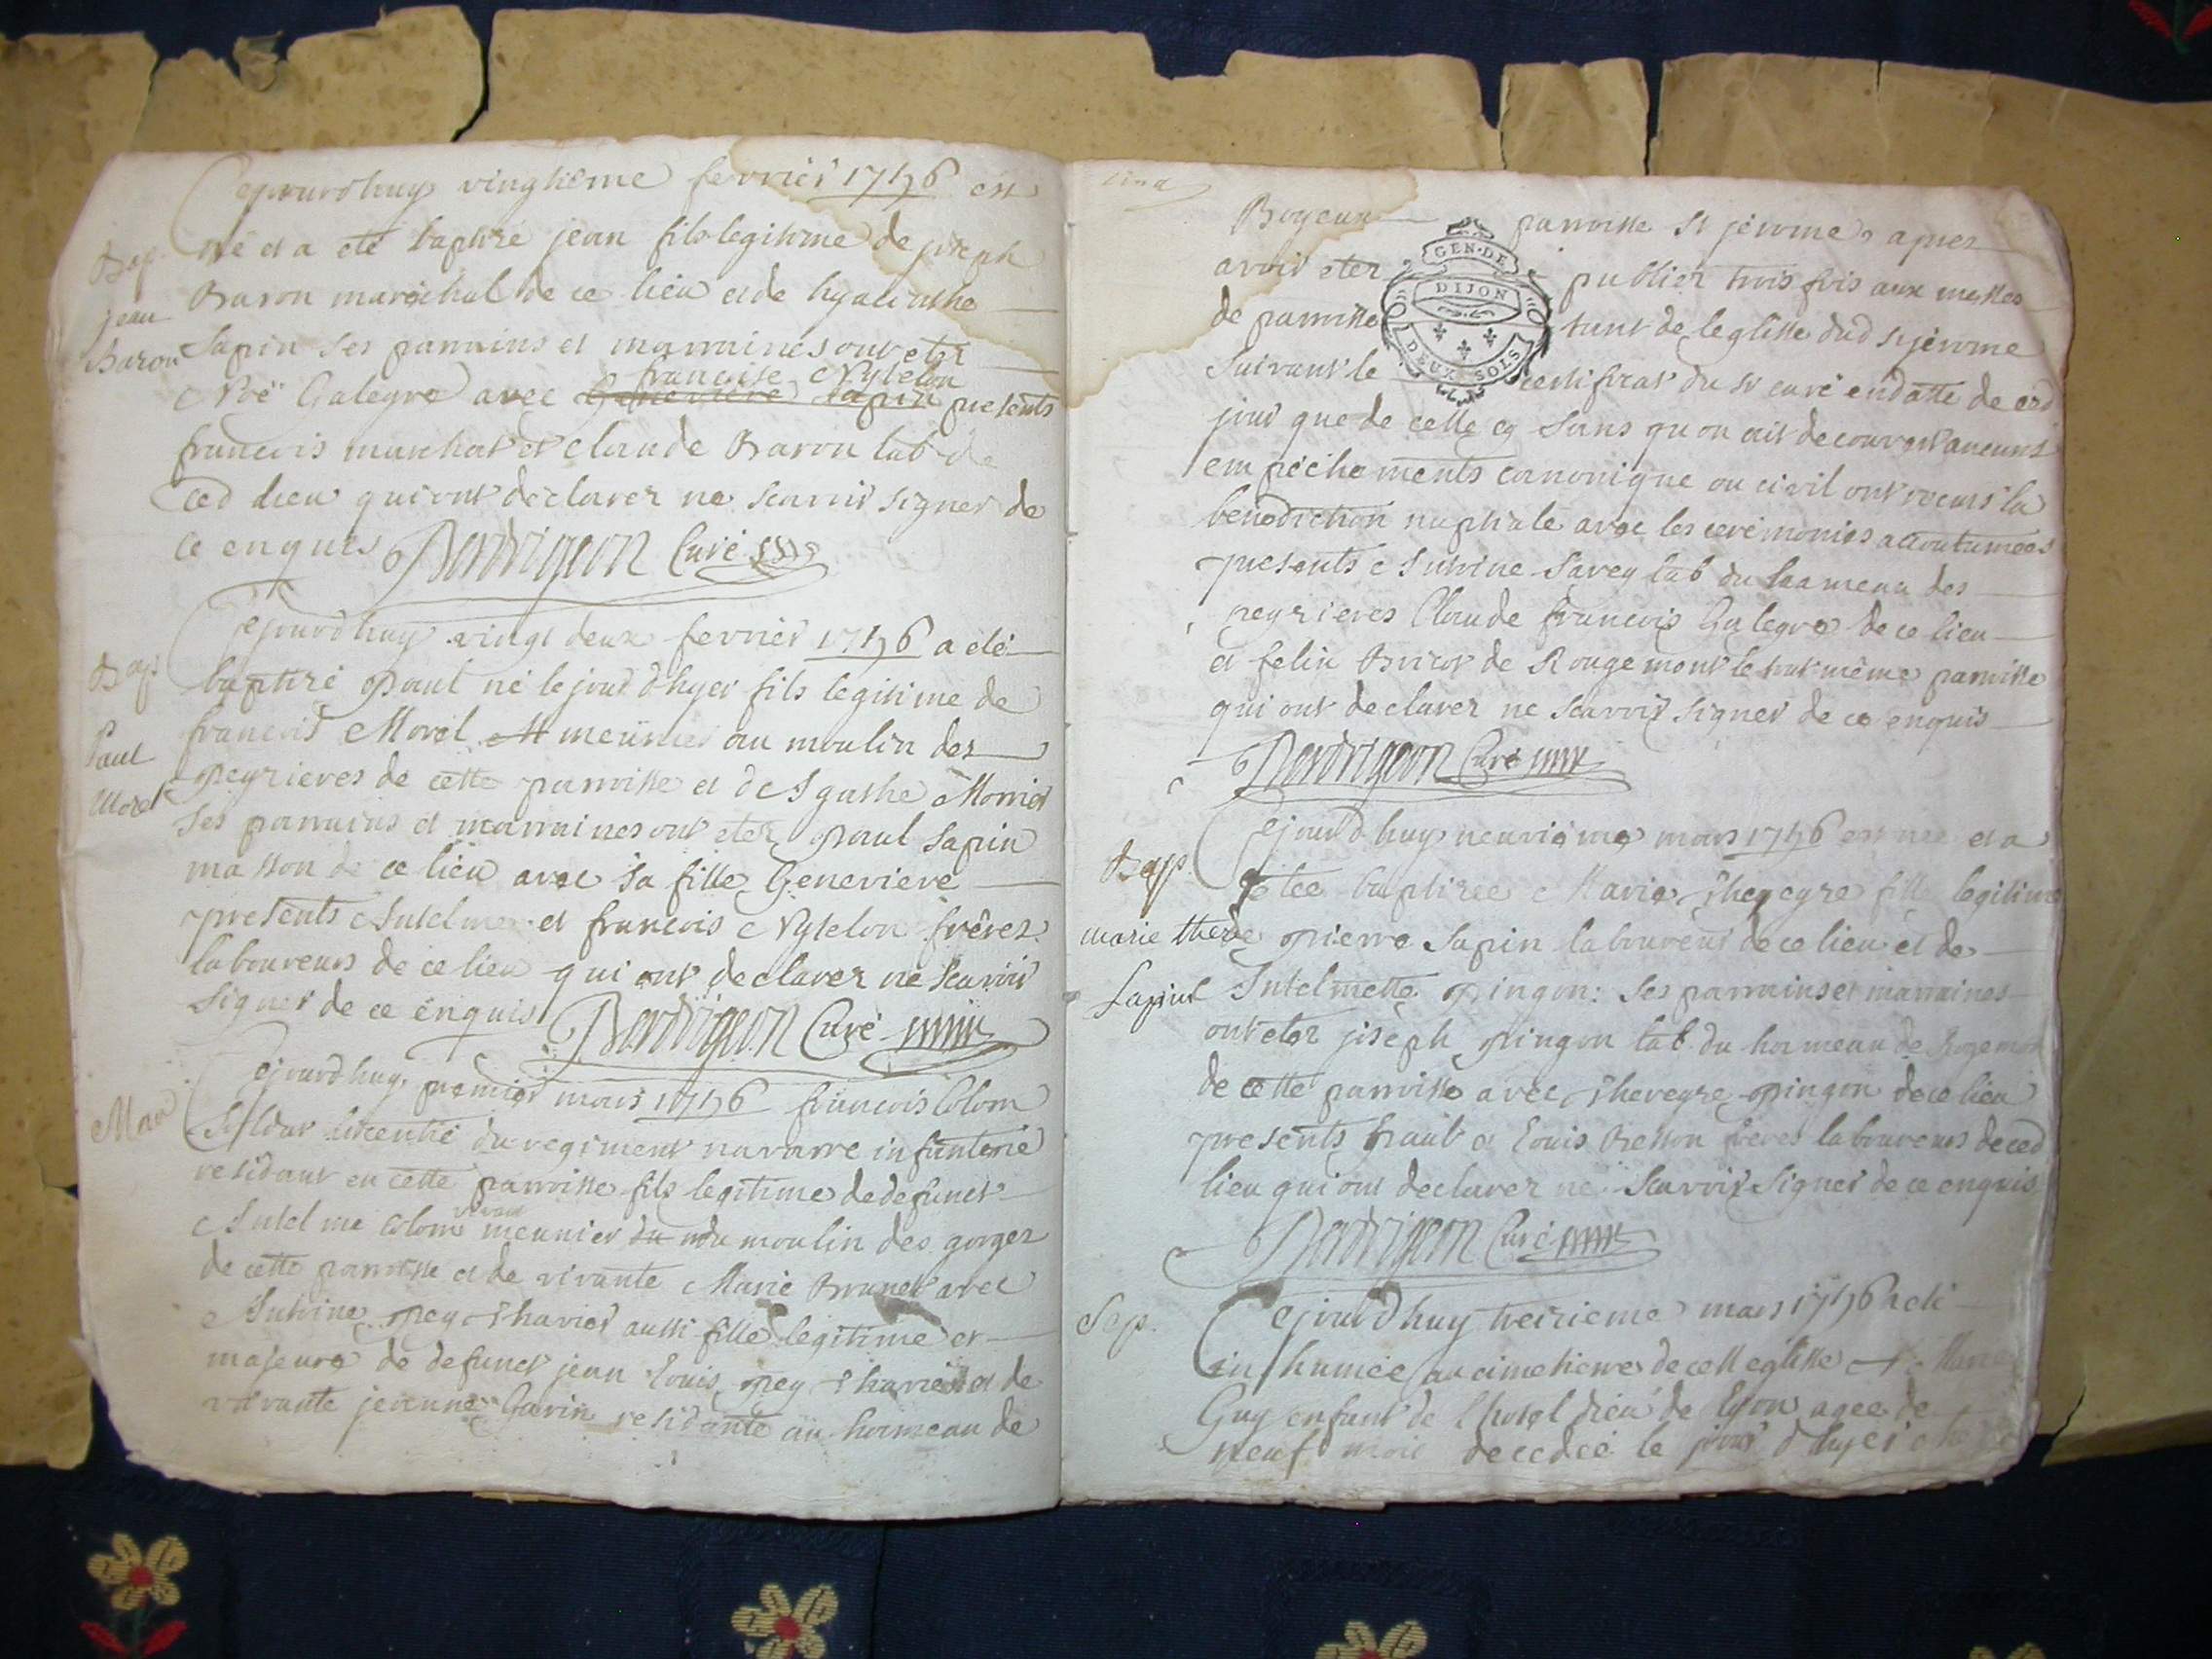 Cejourdhuy vingtieme fevrier 1756 est
Bap. né et a eté baptisé jean fils legitime de joseph
jean Baron maréchal de ce lieu et de hyacinthe
Baron Sapin ses parrains et marraines ont eter
francoise Nytelon
Noë Galegre avec Genevieve Sapin presents
francois marchat et Claude Baron lab de
ced lieu qui ont déclarer ne scavoir signer de
ce enquis Curé
Cejourdhuy vingt deux fevrier 1756 a eté
Bap baptisé paul né le jour dhyer fils legitime de
francois Morel meunier au moulin des
Paul
Morel peyrieres de cette parroisse et de Agathe
ses parrains et marraines ont eter paul Sapin
masson de ce lieu avec sa fille Genevieve
presents Antelme et francois Nytelon freres
laboureurs de ce lieu qui ont declarer ne scavoir
signer de ce enquis Curé
Mar Cejourdhuy premier mars 1756 francois Colom
Soldat licentié du regiment navarre infanterie
residant en cette parroisse fils legitime de defunct
vivant
Antelme Colom meunier du moulin des gorges
de cette parroisse et de vivante Marie Brunet avec
Antoine pey aussi fille legitime et
majeure de defunct jean Louis pey et de
vivante jeanne Gavin residante au hameau de
Boyeux parroisse st jérome, apres
avoir eter publier trois fois aux messes
de parroisse tant de leglisse dud st jérome
GEN. DE
DIJON
DEUX SOLS
Suivant le certificat du sr curé en datte de ced
jour que de celle cy sans quon ait decouvert aucuns
empéchements canonique ou civil ont recus la
benediction nuptiale avec les cerémonies accoutumées
presents Antoine Savey lab du hameau des
peyrieres Claude francois Galegre de ce lieu
et felix de Rougemont le tout même parroisse
qui ont declarer ne scavoir signer de ce enquis
Curé
Cejourdhuy neuvieme mars 1756 est nee et a
Bap etée baptizée Marie Thereyse fille legitime
marie therese de pierre Sapin laboureur de ce lieu et de
Sapin Antelmette pingon: ses parrains et marraines
ont eter joseph pingon lab du hameau de Rogemon
de cette parroisse avec Thereyse pingon de ce lieu
presents paul et Louis freres laboureurs de ced
lieu qui ont declarer ne scavoir signer de ce enquis
Curé
Sep. Cejourdhuy treizieme mars 1756 a eté
inhumée au cimetierre de cette eglisse Marie
Guy enfant de lhotel dieu de Lyon agée de
neuf mois decedée le jour dhyer